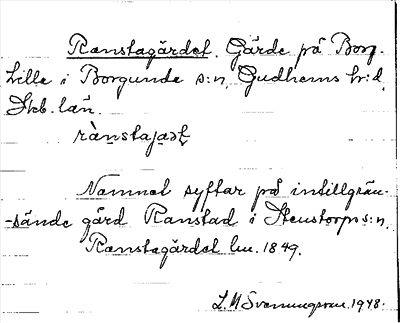 Ranstagärdet. Gärde på Borg-
Lille i Borgunda s:n, Gudhems hr:d,
Skb. län.
rànstajaṣt
Namnet syftar på intillgrän-
-sände gård Ranstad i Stenstorps:n,
Ranstagärdet lm. 1849.
L. M Svenungsson. 1948.